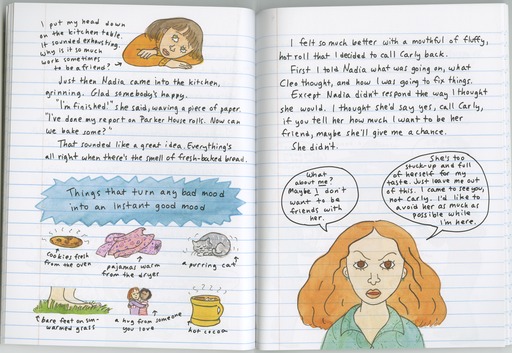 I put my head down
on the kitchen table.
It sounded exhausting.
Why is it so much
work sometimes
to be a friend?
Just then Nadia came into the kitchen,
grinning. Glad somebody's happy.
"I'm finished!" she said, waving a piece of paper.
"I've done my report on Parker House rolls. Now can
we bake some?"
That sounded like a great idea. Everything's
all right when there's the smell of fresh-baked bread.
Things that turn any bad mood
into an instant good mood
cookies fresh
from the oven
pajamas warm
from the dryer
a purring cat
bare feet on sun-
warmed grass
a hug from someone
you love
hot cocoa
I felt so much better with a mouthful of fluffy,
hot roll that I decided to call Carly back.
First I told Nadia what was going on, what
Cleo thought, and how I was going to fix things.
Except Nadia didn't respond the way I thought
she would. I thought she'd say yes, call Carly,
if you tell her how much I want to be her
friend, maybe she'll give me a chance.
She didn't.
What
about me?
Maybe I don't
want to be
friends with
her.
She's too
stuck-up and full
of herself for my
taste. Just leave me out
of this. I came to see you,
not Carly. I'd like to
avoid her as much as
possible while
I'm here.